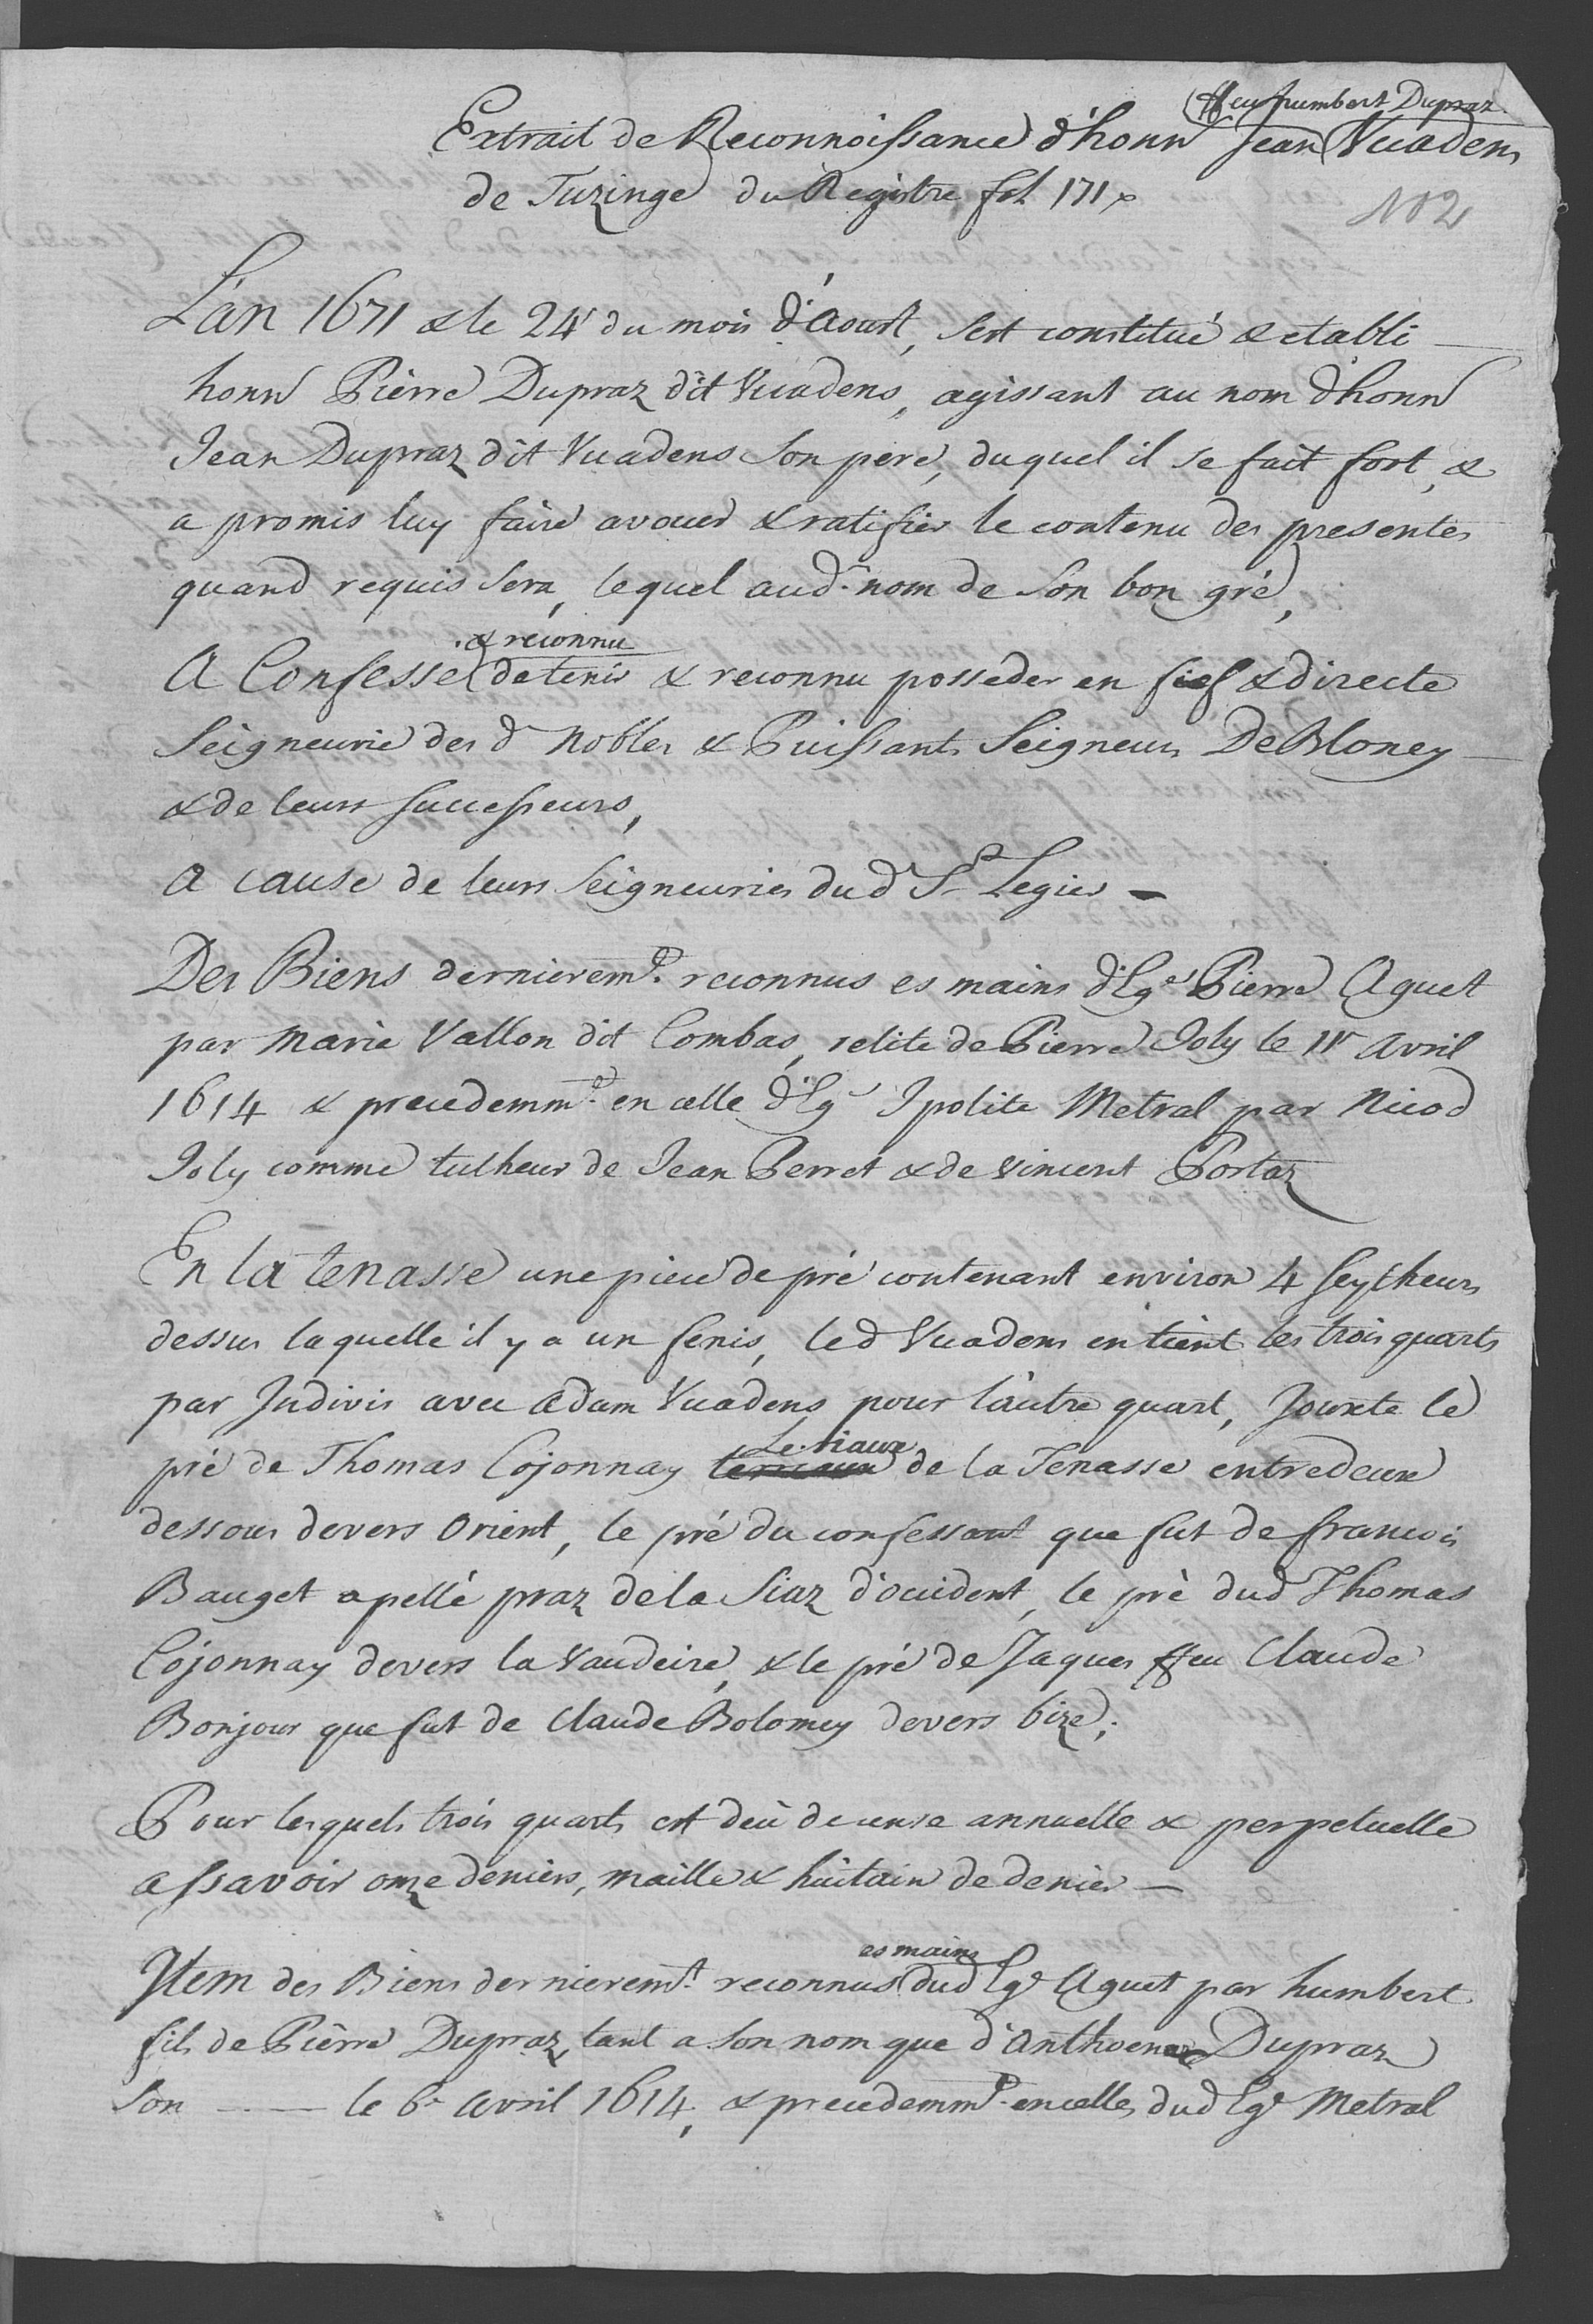 ffeu humbert Dupraz
Extrait de Reconnoissance d'honn Jean Vuadens
de Tuzinge du Registre fol 171
N° 2
L'an 1671 & le 24e du mois d'Aoust, sest constitué & etabli
honn Pierre Dupraz dit Vuadens, agissant au nom d'honn
Jean Dupraz dit Vuadens son pere, duquel il se fait fort, &
a promis luy faire avouer & ratifier le contenu des presentes
quand requis sera, lequel aud. nom de son bon gré,
& reconnu
A Confessé detenir & reconnu posseder en fief & directe
Seigneurie des d Nobles & Puissants Seigneurs De Bloney
& de leurs successeurs,
a cause de leurs Seigneuries dud St Legier -
Des Biens dernieremt. reconnus es mains d'Ege Pierre Aguet
par Marie Vallon dit Combas, relite de Pierre Joly le 11e Avril
1614 & precedemmt. en celle d'Eg Ipolite Metral par Nicod
Joly comme tutheur de Jean Perret & de Vincent Portaz
En la tenasse une piece de pré contenant environ 4 seytheurs
dessus laquelle il y a un fenis, led Vuadens en tient les trois quarts
par Indivis avec Adam Vuadens pour l'autre quart, Jouxte le
pré de Thomas Cojonnay Le riaux de la Tenasse entredeux
dessous devers Orient, le pré du confessant que fut de francois
Bauget apellé praz de la Siaz d'occident, le pré dud Thomas
Cojonnay devers la Vaudeire, & le pré de Jaques ffeu Claude
Bonjour que fut de Claude Bolomey devers bize;
Pour lesquels trois quarts est deü de cense annuelle & perpetuelle
assavoir onze deniers, maille & huitain de denier -
es mains
Item des Biens dernieremt. reconnus dud Ege Aguet par humbert
fils de Pierre Dupraz, tant a son nom que d'Anthoene Dupraz
son ---- le 6e Avril 1614, & precedemmt. en celles dud Ege Metral